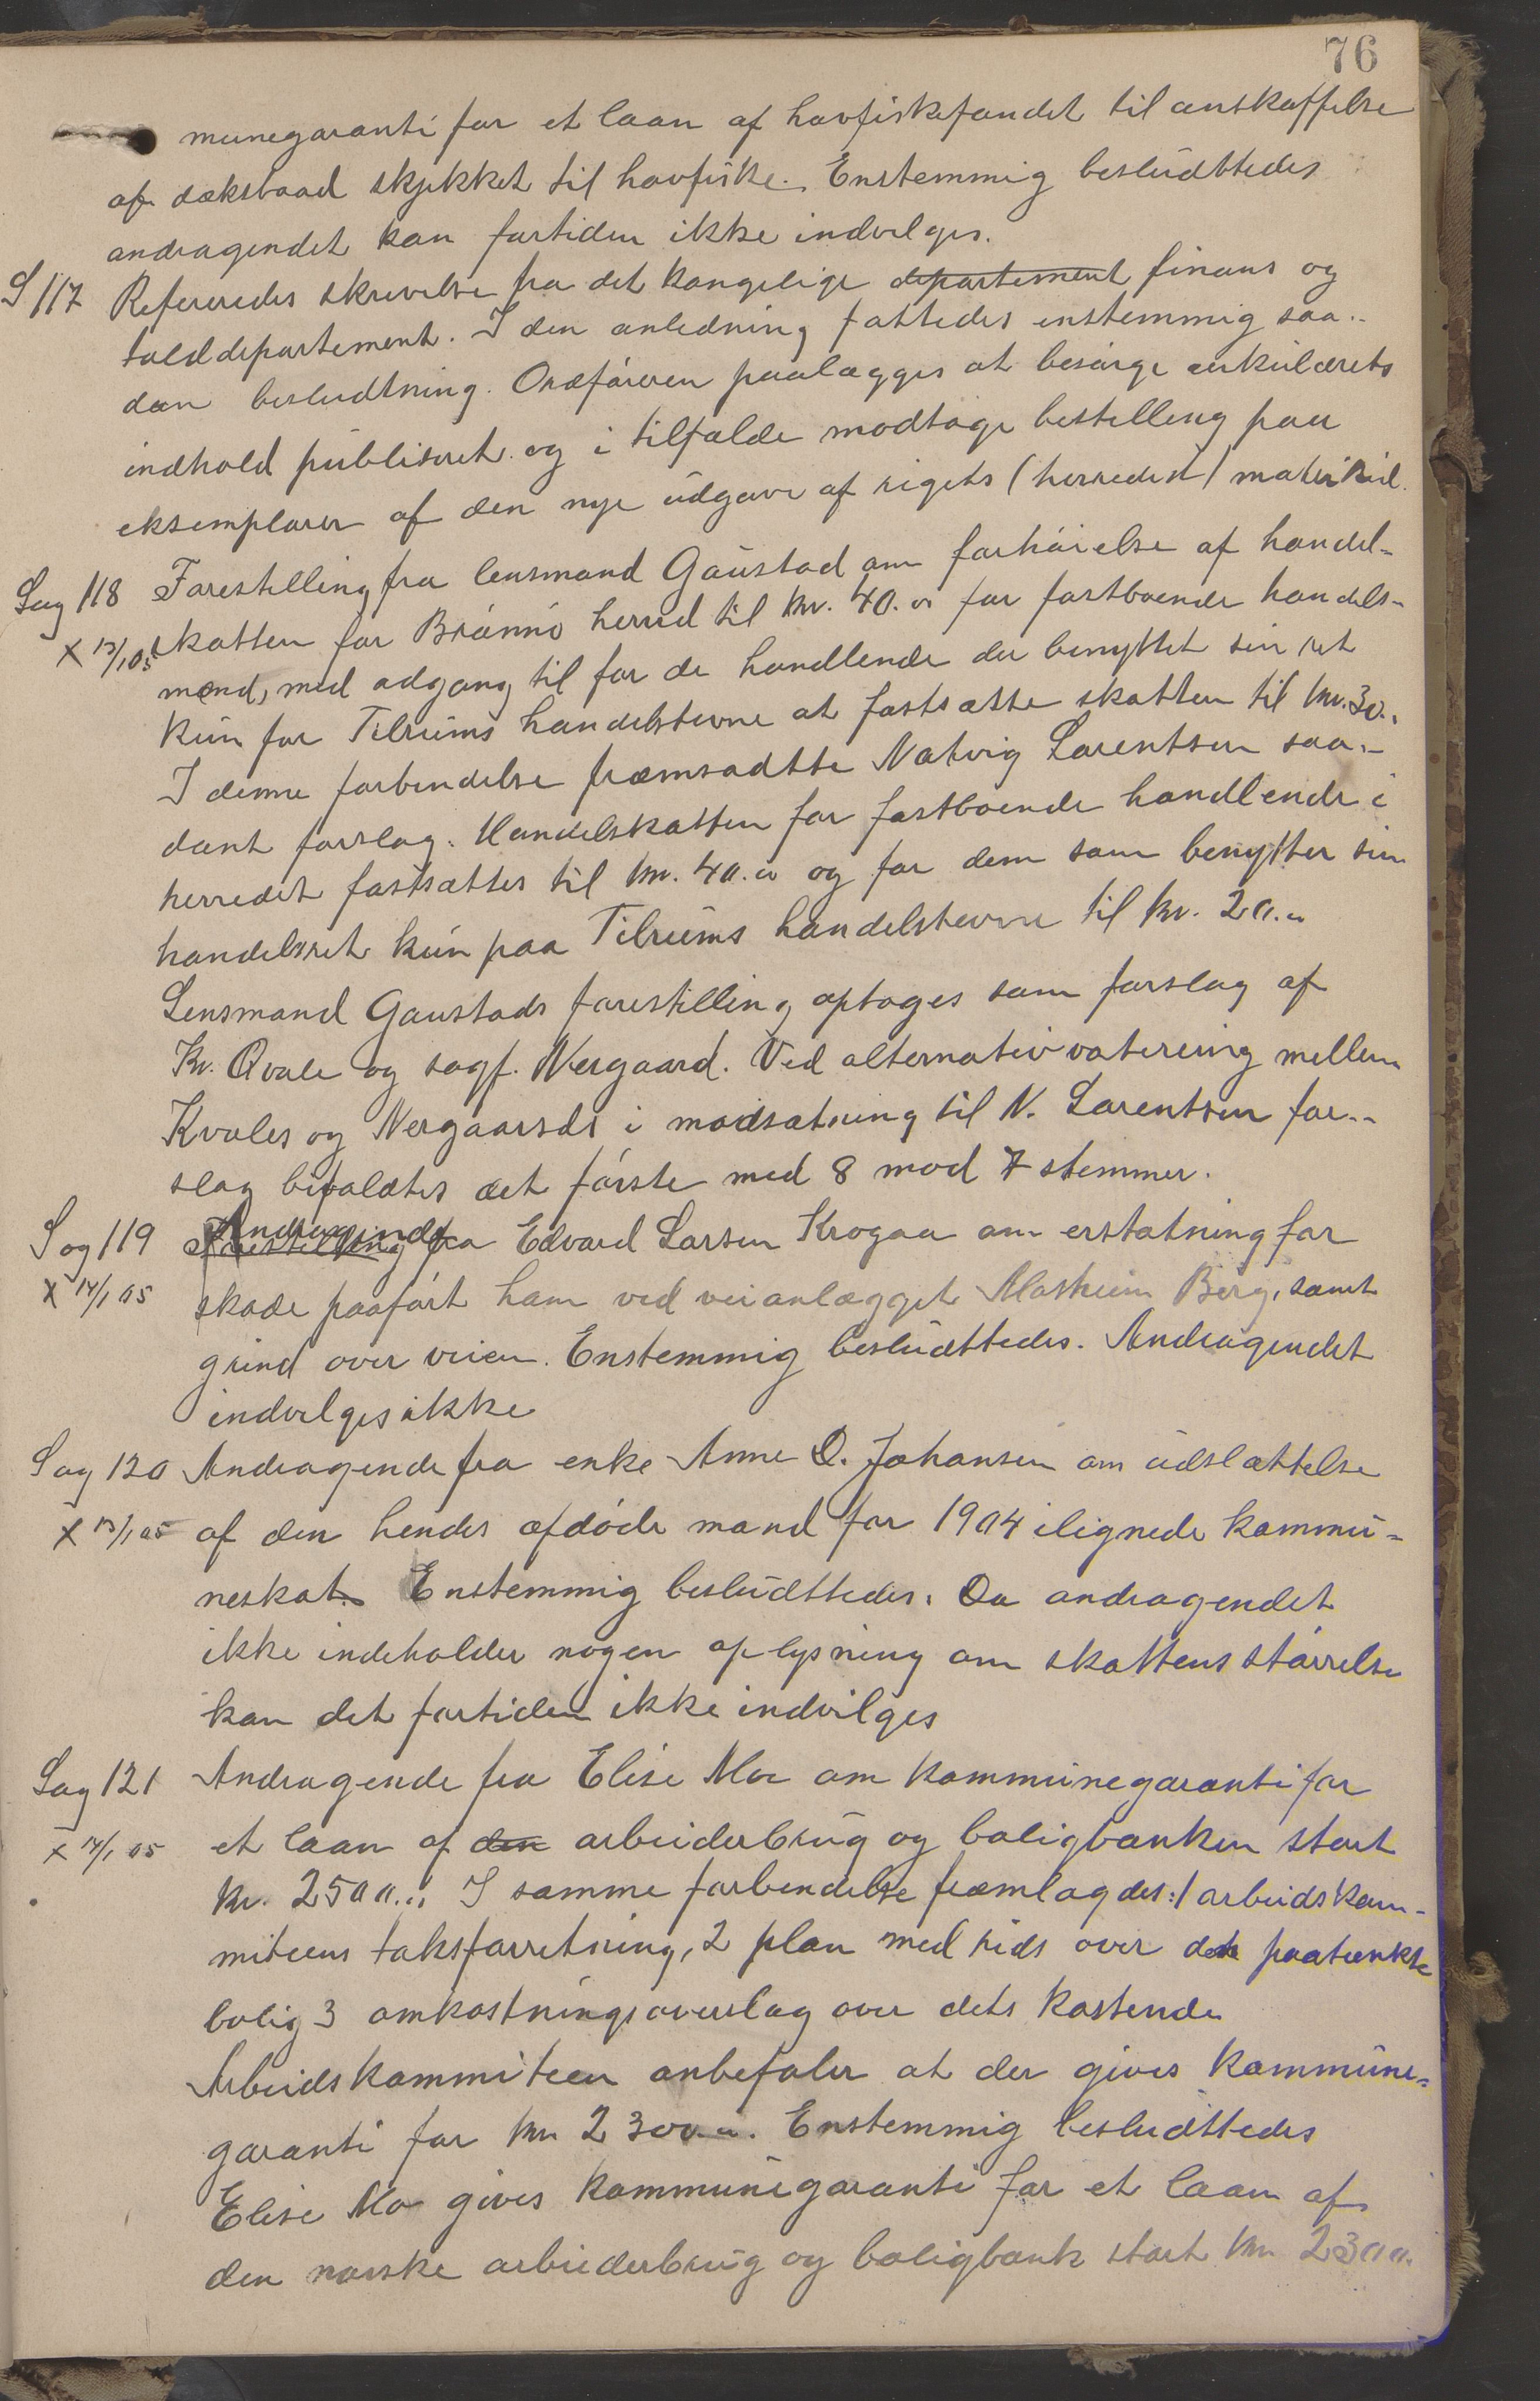 76
munegaranti for et laan af havfiskefondet til anskaffelse
af dæksbaad skjikket til havfiske. Enstemmig besludttedes
andragendet kan fortiden ikke indvilges.
S 117 Refereredes skrivelse fra det kongelige departement finans og
tolddepartement. I den anledning fattedes enstemmig saa-
dan besludtning. Ordføreren paalægges at besørge cirkulærets
indhold publiseret og i tilfælde modtage bestilling paa
eksemplarer af den nye udgave af rigets (herredets) matrikul.
Sag 118 Forestilling fra lensmand Gaustad om forhøielse af handel-
x 13/1 05 skatten for Brønnø herred til kr. 40.00 for fastboende handels-
mænd, med adgang til for de handlende der benyttet sin ret
kun for Tilrums handelstevne at fastsætte skatten til kr. 30.
I denne forbindelse fræmsadtte Natvig Lorentsen saa-
dant forslag. Handelskatten for fastboende handlende i
herredet fastsættes til kr. 40.00 og for dem som benytter sin
handelsret kun paa Tilrums handelstevne til kr. 20.00
Lensmand Gaustads forestilling optoges som forslag af
Kr. Qvale og sagf. Nergaard. Ved alternativ votering mellem
Kvales og Nergaarsds i modsætning til N. Lorentsen for-
slag bifaldtes det første med 8 mod 7 stemmer.
Sag 119 Forestilling Andragende fra Edvard Larsen Krogaa om erstatning for
x 14/1 05 skade paaført ham ved veianlægget Mosheim Berg, samt
grind over veien. Enstemmig besludttedes. Andragendet
indvilges ikke
Sag 120 Andragende fra enke Anne O. Johansen om udslættelse
x 13/1 05 af den hendes afdøde mand for 1904 ilignede kommu-
neskat. Enstemmig besludttedes. Da andragendet
ikke indeholder nogen oplysning om skattens størrelse
kan det fortiden ikke indvilges
Sag 121 Andragende fra Elise Moe om kommunegaranti for
x 14/1 05 et laan af den arbeiderbrug og boligbanken stort
kr. 2500.00 I samme forbindelse fræmlagdes: 1 arbeidskom-
miteens taksforretning, 2 plan med rids over den paatænkte
bolig 3 omkostningsoverslag over dets kostende
Arbeidskommiteen anbefaler at der gives kommune-
garanti for kr 2300.00. Enstemmig besludttedes
Elise Mo gives kommunegaranti for et laan af
den norske arbeiderbrug og boligbank stort kr 2300.